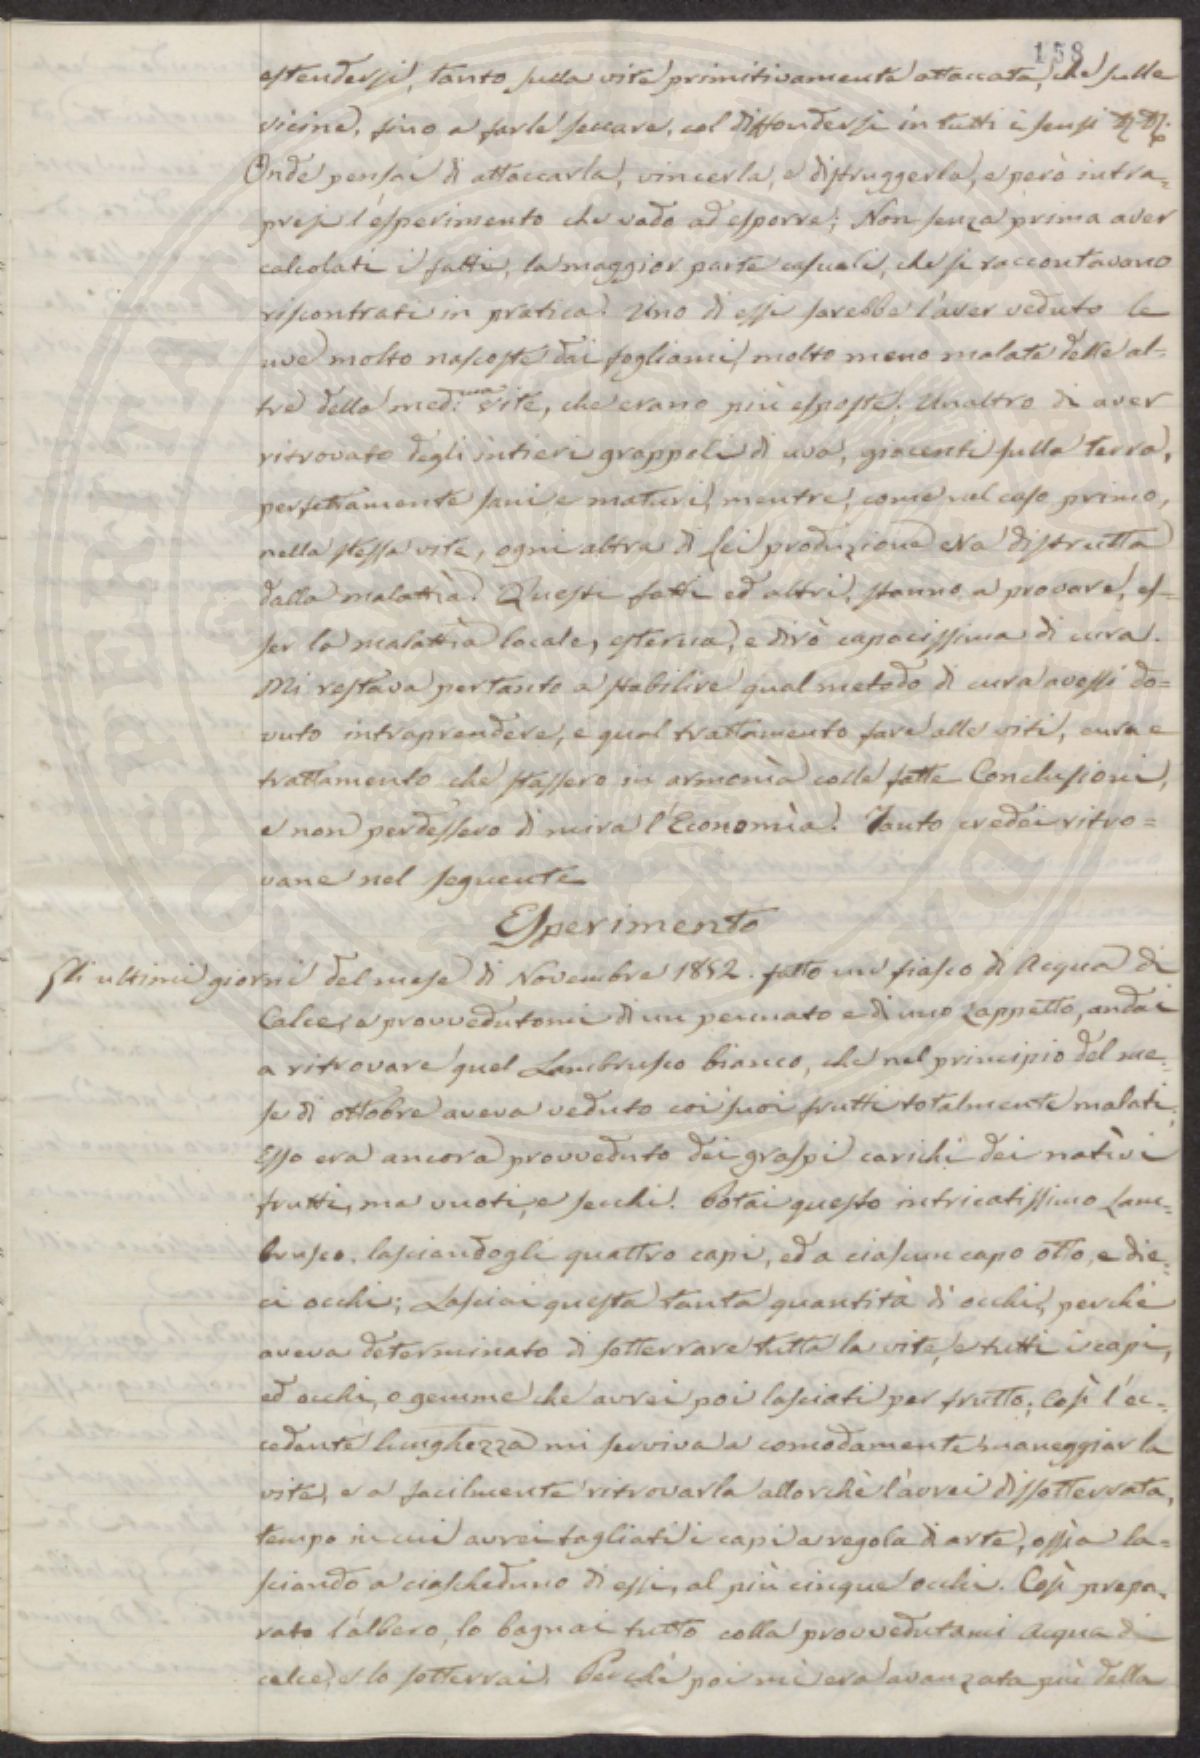 158
estendersi, tanto sulla vite primitivamente attaccata, che sulle
vicine, fino a farle seccare, col diffondersi in tutti i sensi
Onde pensai di attaccarla, vincerla, e distruggerla, e però intra=
presi l'esperimento che vado ad esporre; Non senza prima aver
calcolati i fatti, la maggior parte casuali, che si raccontavano
riscontrati in pratica. Uno di essi sarebbe l'aver veduto le
uve molto nascoste dai fogliami, molto meno malate delle al=
tre della med:ma vite, che erano più esposte. Unaltro di aver
ritrovato degli intieri grappoli di uva, giacenti sulla terra,
perfettamente sani e maturi, mentre, come nel caso primo,
nella stessa vite, ogni altra di lei produzione era distrutta
dalla malattìa. Questi fatti ed altri, stanno a provare, es=
ser la malattìa locale, esterna, e dirò capacissima di cura.
Mi restava pertanto a stabilire qual metodo di cura avessi do=
vuto intraprendere, e qual trattamento fare alle viti, cura e
trattamento che stassero in armonìa colle fatte Conclusioni,
e non perdessero di mira l'Economìa. Tanto credei ritro=
vare nel seguente
Esperimento
Gli ultimi giorni del mese di Novembre 1852. fatto un fiasco di Acqua di
Calce, e provvedutomi di un pennato e di uno zappetto, andai
a ritrovare quel Lambrusco bianco, che nel principio del me=
se di ottobre aveva veduto coi suoi frutti totalmente malati.
Esso era ancora provveduto dei graspi carichi dei natìvi
frutti, ma vuoti, e secchi. Potai questo intricatissimo Lam=
brusco, lasciandogli quattro capi, ed a ciascun capo otto, e die=
ci occhi; Lasciai questa tanta quantità di occhi, perchè
aveva determinato di sotterrare tutta la vite, e tutti i capi,
ed occhi, o gemme che avrei poi lasciati per frutto; Così l'ec=
cedente lunghezza mi serviva a comodamente maneggiar la
vite, e a facilmente ritrovarla allorchè l'avrei dissotterrata,
tempo in cui avrei tagliati i capi a regola di arte, ossìa la=
sciando a ciascheduno di essi, al più cinque occhi. Così prepa=
rato l'albero, lo bagnai tutto colla provvedutami Acqua di
calce, e lo sotterrai. Perchè poi mi era avanzata più della